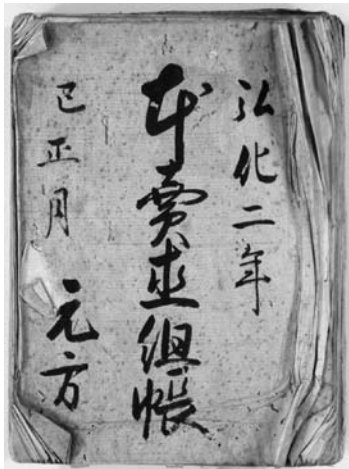 弘化二年
本賣直組帳
巳正月
元方